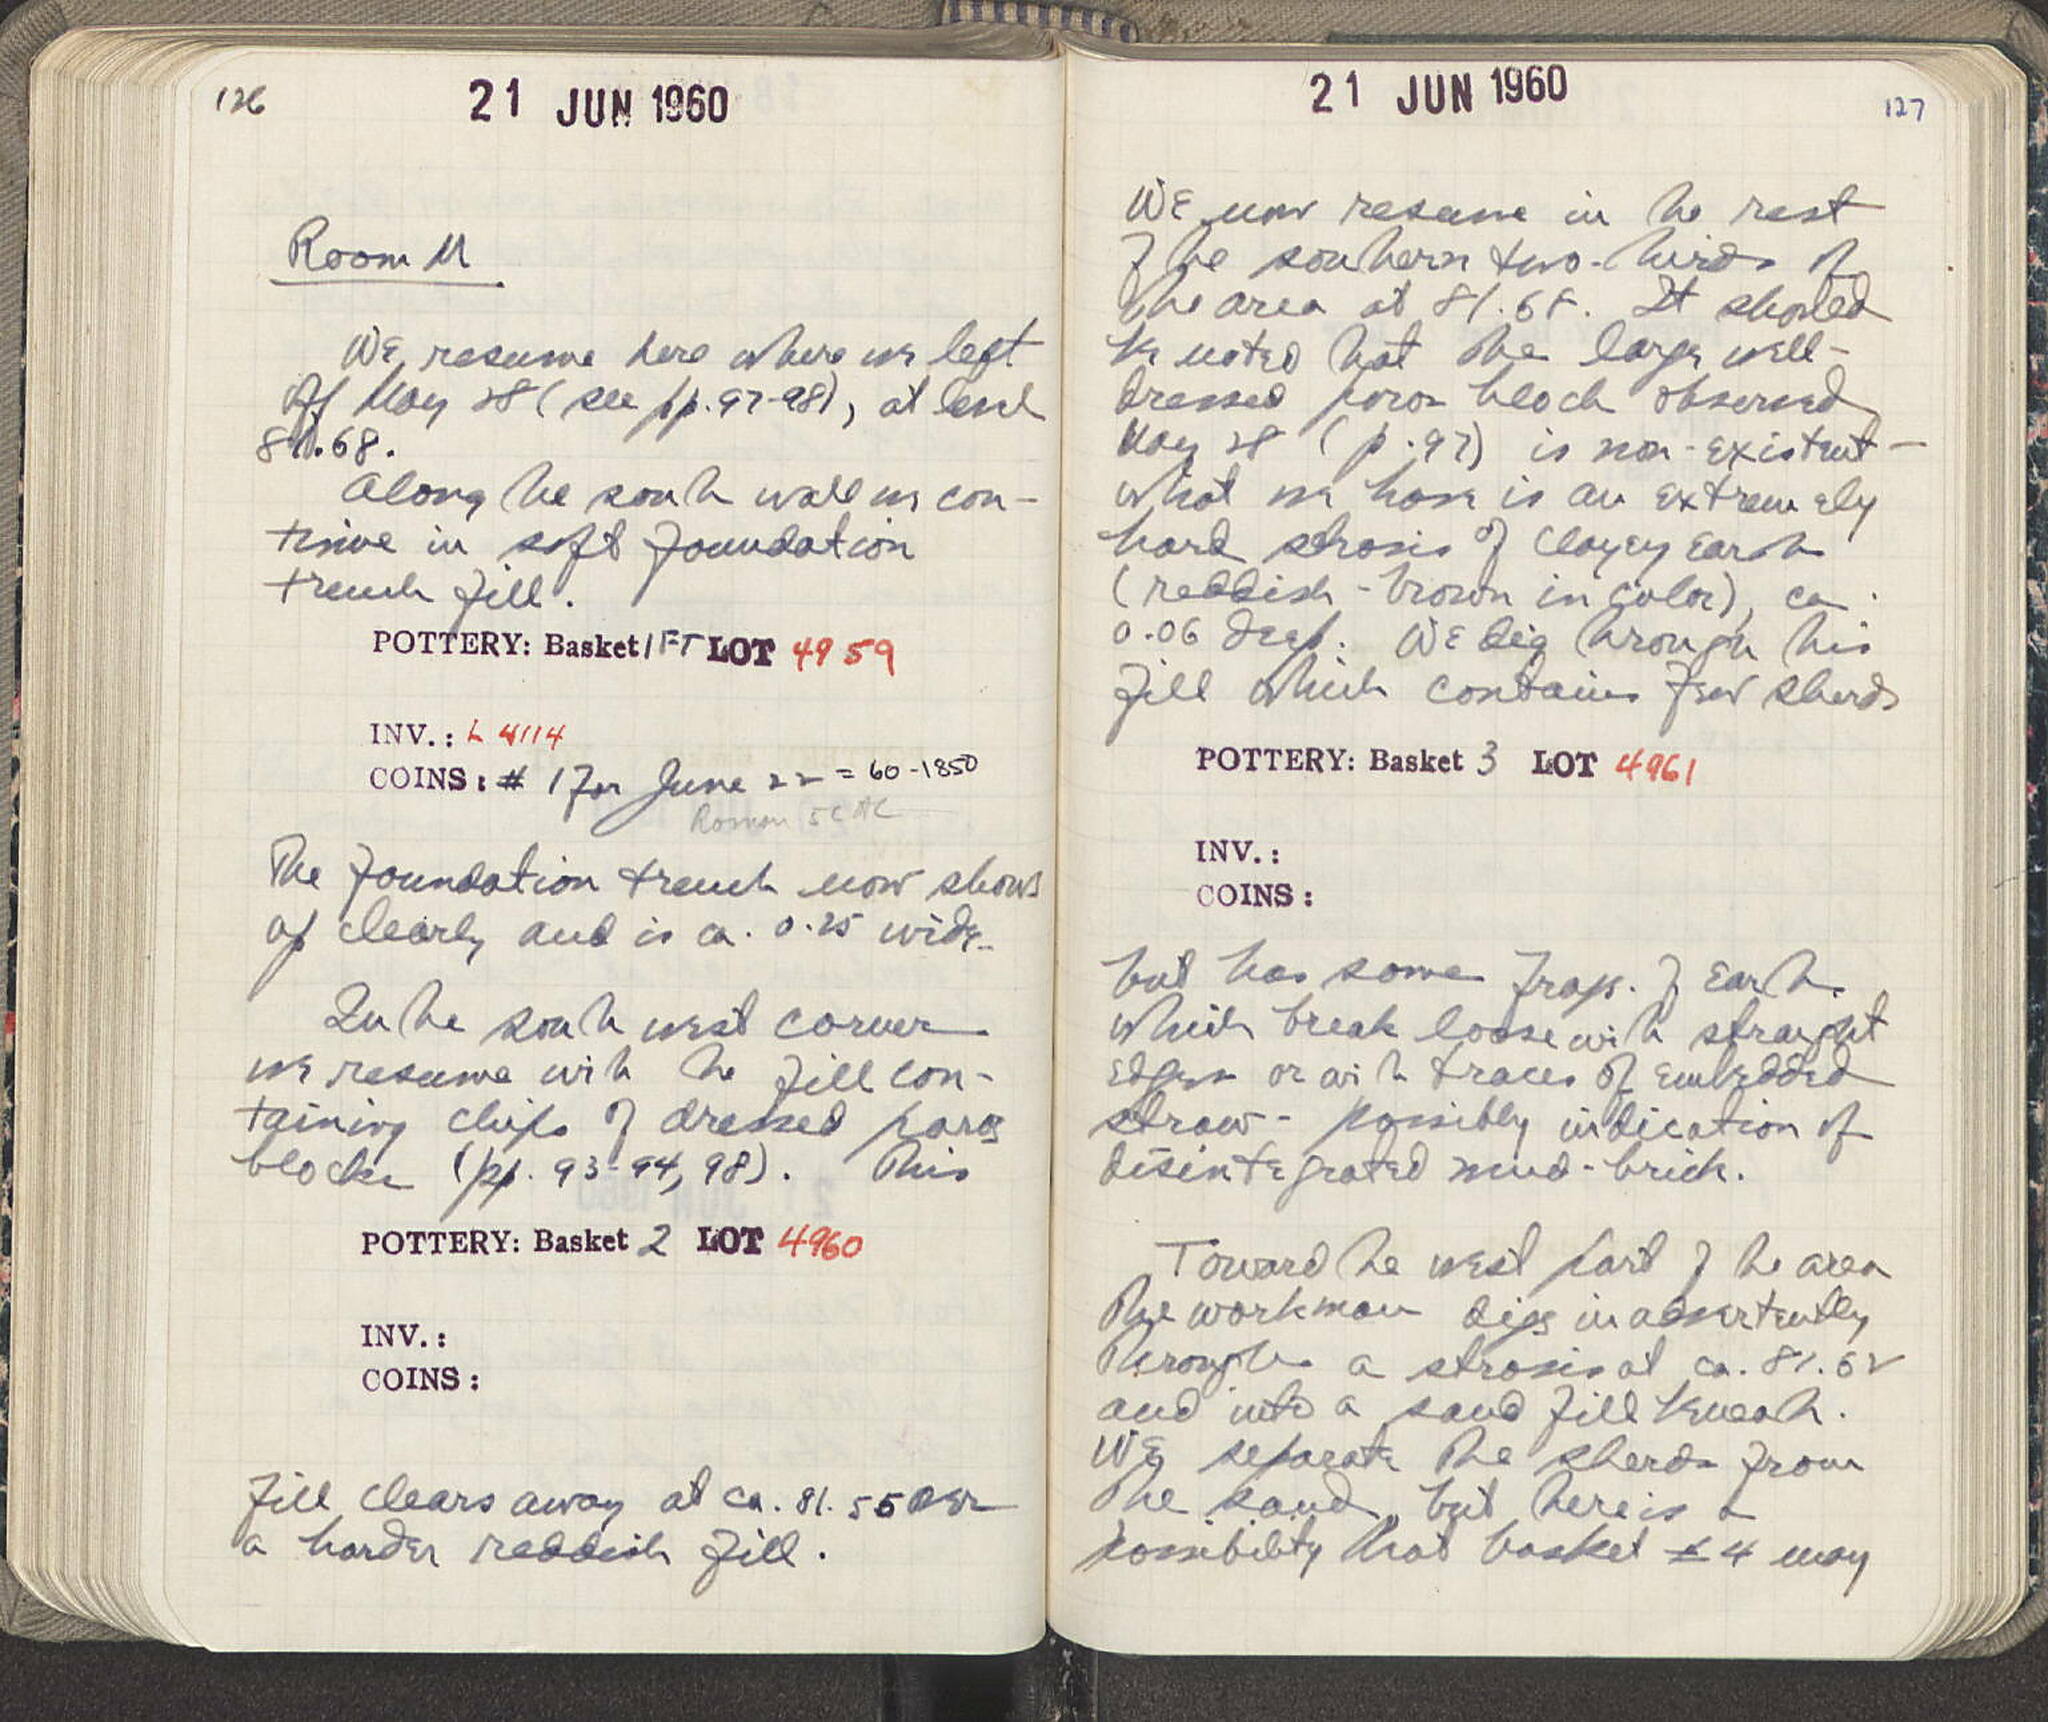 126
21 JUN 1960
Room M
We resume here where we left
off May 28 (see pp. 97-98), at level
81.68.
Along the south wall we con-
tinue in soft foundation
trench fill.
POTTERY: Basket 1 FT LOT 4959
INV.: L 4114
COINS: # 1 for June 22 = 60-1850
Roman 5C AC
The foundation trench now shows
up clearly and is ca. 0.25 wide.
In the south west corner
we resume with the fill con-
taining chips of dressed poros
blocks (pp. 93-94, 98). This
POTTERY: Basket 2 LOT 4960
INV.:
COINS:
fill clears away at ca. 81.55 over
a harder reddish fill.
21 JUN 1960
127
We now resume in the rest
of the southern two-thirds of
the area at 81.68. It should
be noted that the large well-
dressed poros block observed
May 28 (p. 97) is non-existent -
what we have is an extremely
hard strosis of clayey earth
(reddish-brown in color), ca.
0.06 deep. We dig through this
fill which contains few sherds
POTTERY: Basket 3 LOT 4961
INV.:
COINS:
but has some frags. of earth
which break loose with straight
edges or with traces of embedded
straw - possibly indication of
disintegrated mud-brick.
Toward the west part of the area
the workman digs inadvertently
through a strosis at ca. 81.62
and into a sand fill beneath.
We separate the sherds from
the sand, but there is a
possibility that basket # 4 may